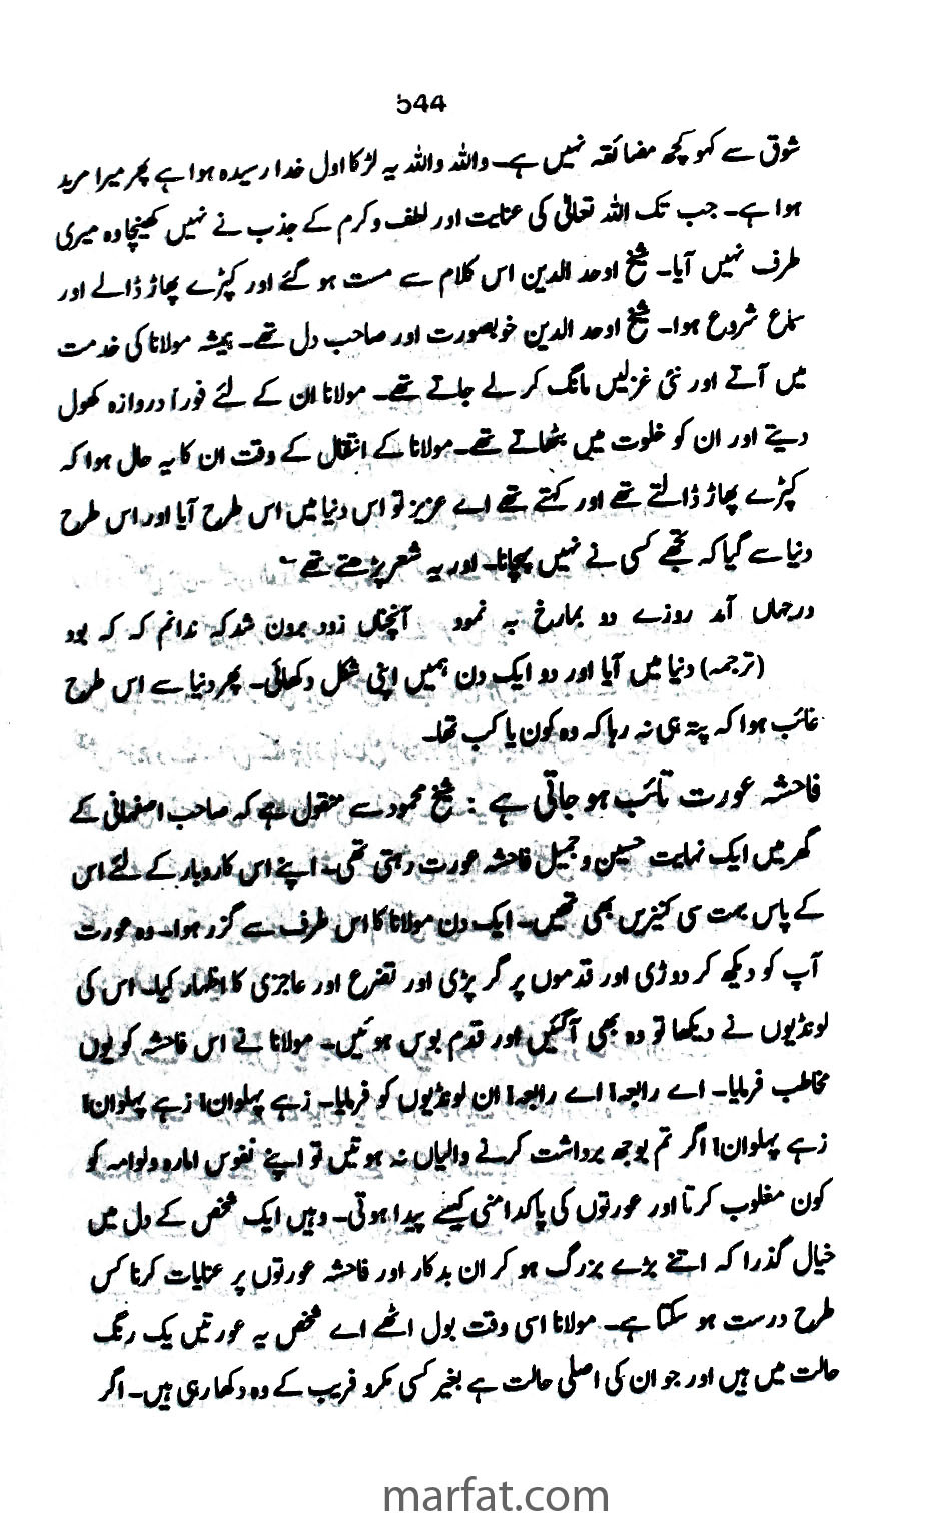 544
شوق سے کہو کچھ مضائقہ نہیں ہے۔ واللہ واللہ یہ لڑکا اول خدا رسیدہ ہوا ہے پھر میرا مرید
ہوا ہے۔ جب تک اللہ تعالیٰ کی عنایت اور لطف و کرم کے جذب نے نہیں کھینچا وہ میری
طرف نہیں آیا۔ شیخ اوحد الدین اس کلام سے مست ہو گئے اور کپڑے پھاڑ ڈالے اور
سماع شروع ہوا۔ شیخ اوحد الدین خوبصورت اور صاحب دل تھے۔ ہمیشہ مولانا کی خدمت
میں آتے اور نئی غزلیں مانگ کر لے جاتے تھے۔ مولانا ان کے لئے فوراً دروازہ کھول
دیتے اور ان کو خلوت میں بٹھاتے تھے۔ مولانا کے انتقال کے وقت ان کا یہ حال ہوا کہ
کپڑے پھاڑ ڈالتے تھے اور کہتے تھے اے عزیز تو اس دنیا میں اس طرح آیا اور اس طرح
دنیا سے گیا کہ تجھے کسی نے نہیں پہچانا۔ اور یہ شعر پڑھتے تھے ؎
درجہاں آمد روزے دو بمارخ بہ نمود آنچناں زود برون شد کہ ندانم کہ کہ بود
(ترجمہ) دنیا میں آیا اور دو ایک دن ہمیں اپنی شکل دکھائی۔ پھر دنیا سے اس طرح
غائب ہوا کہ پتہ ہی نہ رہا کہ وہ کون یا کب تھا۔
فاحشہ عورت تائب ہو جاتی ہے : شیخ محمود سے منقول ہے کہ صاحب اصفہانی کے
گھر میں ایک نہایت حسین و جمیل فاحشہ عورت رہتی تھی۔ اپنے اس کاروبار کے لئے اس
کے پاس بہت سی کنیزیں بھی تھیں۔ ایک دن مولانا کا اس طرف سے گزر ہوا۔ وہ عورت
آپ کو دیکھ کر دوڑی اور قدموں پر گر پڑی اور تضرع اور عاجزی کا اظہار کیا۔ اس کی
لونڈیوں نے دیکھا تو وہ بھی آ گئیں اور قدم بوس ہوئیں۔ مولانا نے اس فاحشہ کو یوں
مخاطب فرمایا۔ اے رابعہ! اے رابعہ! ان لونڈیوں کو فرمایا۔ زہے پہلوان! زہے پہلوان!
زہے پہلوان! اگر تم بوجھ برداشت کرنے والیاں نہ ہوتیں تو اپنے نفوس امارہ و لوامہ کو
کون مغلوب کرتا اور عورتوں کی پاکدامنی کیسے پیدا ہوتی۔ وہیں ایک شخص کے دل میں
خیال گذرا کہ اتنے بڑے بزرگ ہو کر ان بدکار اور فاحشہ عورتوں پر عنایات کرنا کس
طرح درست ہو سکتا ہے۔ مولانا اسی وقت بول اٹھے اے شخص یہ عورتیں یک رنگ
حالت میں ہیں اور جو ان کی اصلی حالت ہے بغیر کسی مکرو فریب کے وہ دکھا رہی ہیں۔ اگر
marfat.com